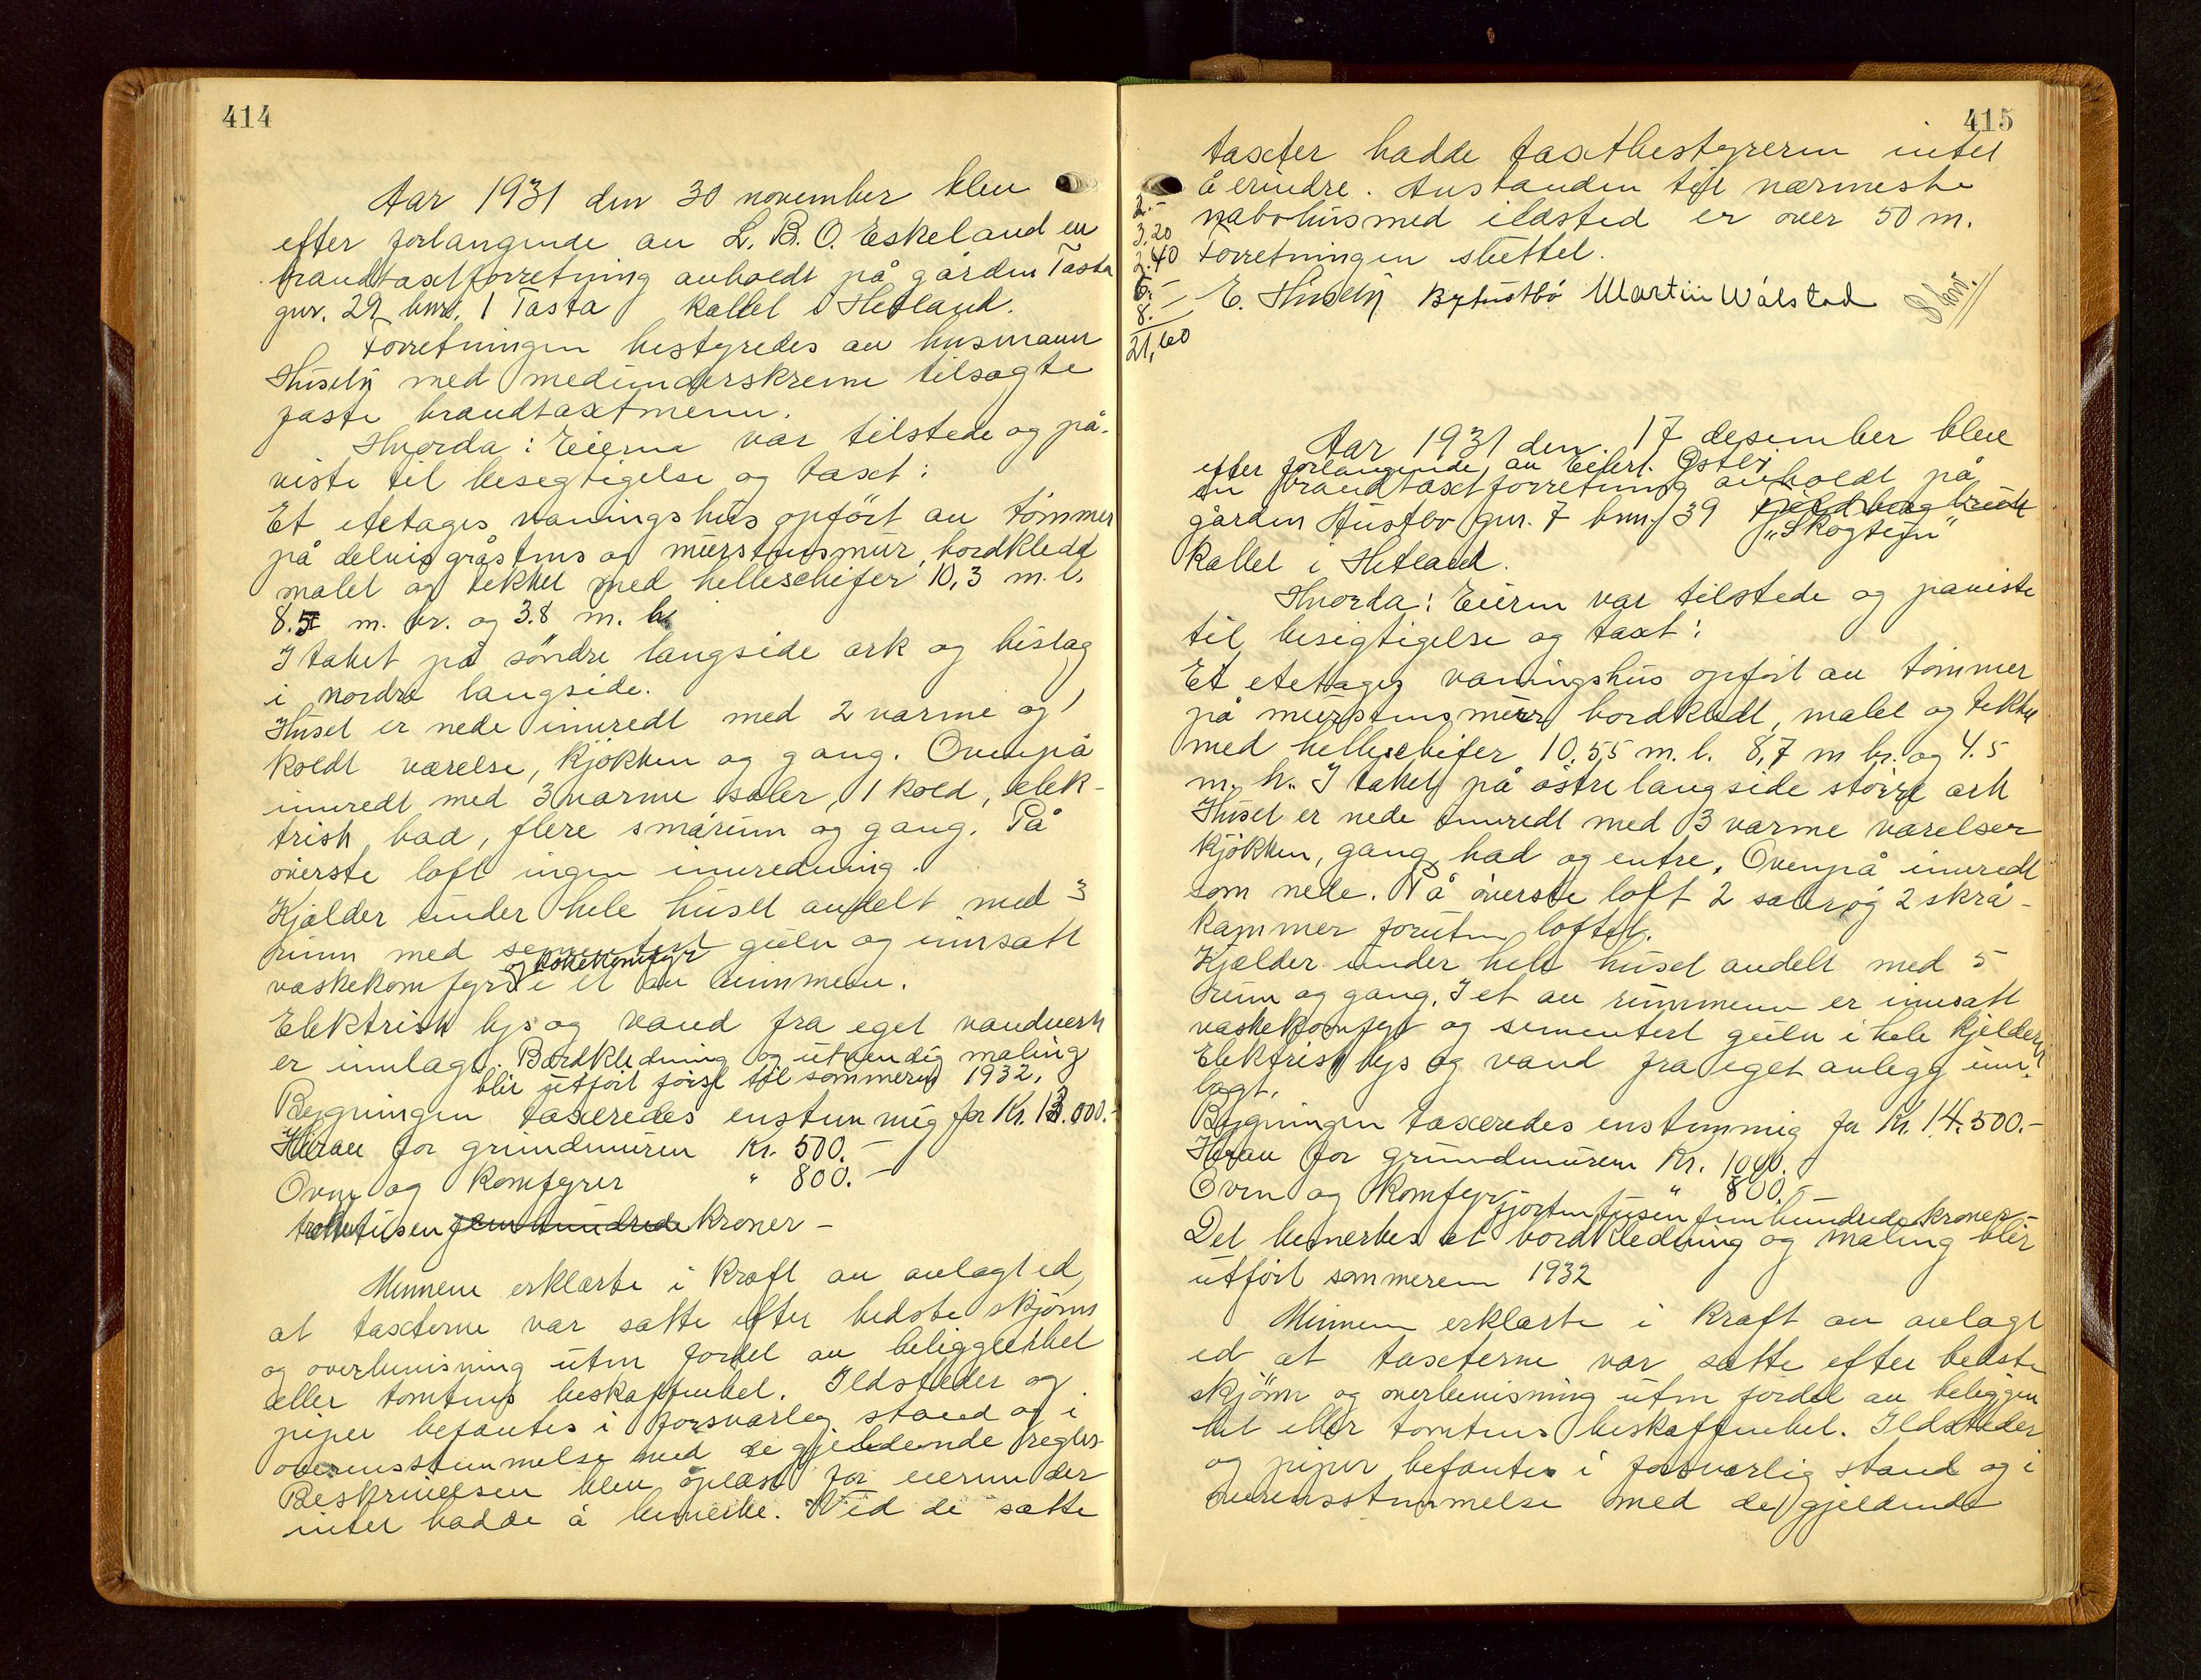 414
Aar 1931 den 30 november blev
efter forlangende av L. B. O. Eskeland en
brandtaxtforretning avholdt på gården Tasta
gnr. 29 bnr. 1 Tasta kallet i Hetland.
Forretningen bestyredes av husmann
Husebÿ med medunderskrevne tilsagte
faste brandtaxtmenn.
Hvorda: Eieren var tilstede og på-
viste til besegtigelse og taxt:
Et etetages vaningshus opført av tømmer
på delvis gråstens og murstensmur, bordkledd
malet og tekket med helleschifer 10,3 m. l.
8.5 m. br. og 3.8 m. h.
I taket på søndre langside ark og bislag
i nordre langside.
Huset er nede innredt med 2 varme og 1
koldt værelse, kjøkken og gang. Ovenpå
innredt med 3 varme saler, 1 kold, elek-
trisk bad, flere smårum og gang. På
øverste loft ingen innredning.
Kjælder under hele huset avdelt med 3
rum med sementert gulv og innsatt
vaskekomfyr og kokekomfyr i et av rummene.
Elektrisk lys og vand fra eget vandverk
er innlagt. Bordkledning og utvendig maling
blir utført først til sommeren 1932.
Bygningen taxeredes enstemmig for Kr. 13.000.-
Herav for grundmuren Kr. 500.-
Ovne og komfyrer " 800.-
trettentusen femhundrede kroner -
Mennene erklærte i kraft av avlagt ed,
at taxterne var satte efter bedste skjønn
og overbevisning uten fordel av beliggenhet
eller tomtens beskaffenhet. Ildsteder og
piper befantes i forsvarlig stand og i
overensstemmelse med de gjeldende regler
Beskrivelsen blev oplæst for eieren der
intet hadde å bemerke. Ved de satte
415
taxter hadde taxtbestyreren intet
å erindre. Avstanden til nærmeste
nabohus med ildsted er over 50 m.
Forretningen sluttet.
E. Husebÿ Martin Wålstad
2.-
3.20
2.40
6.-
8.-
21,60
Aar 1931 den 17 desember blev
efter forlangende av
en brandtaxtforretning avholdt på
gården Austbø gnr. 7 bnr. 39
"Skogteÿn"
kallet i Hetland.
Hvorda: Eieren var tilstede og paviste
til besigtigelse og taxt:
Et etetages vaningshus opført av tømmer
på murstensmur, bordkledt, malet og tekket
med helleschifer 10,55 m. l. 8,7 m br. og 4.5
m. h. I taket på østre langside større ark
Huset er nede innredt med 3 varme værelser
kjøkken, gang, bad og entre. Ovenpå innredt
som nede. På øverste loft 2 saler og 2 skrå-
kammer foruten loftet.
Kjælder under hele huset avdelt med 5
rum og gang. I et av rummene er innsatt
vaskekomfyr og sementert gulv i hele kjelderen
Elektrisk lys og vand fra eget anlegg inn-
lagt.
Bygningen taxeredes enstemmig for Kr. 14.500.-
Herav for grundmuren Kr. 1000.-
Ovn og komfyr " 800.-
fjortentusenfemhundrede kroner-
Det bemerkes at bordkledning og maling blir
utført sommeren 1932
Mennene erklærte i kraft av avlagt
ed at taxterne var satte efter bedste
skjønn og overbevisning uten fordel av beliggen
het eller tomtens beskaffenhet. Ildsteder
og piper befantes i forsvarlig stand og i
overensstemmelse med de gjeldende